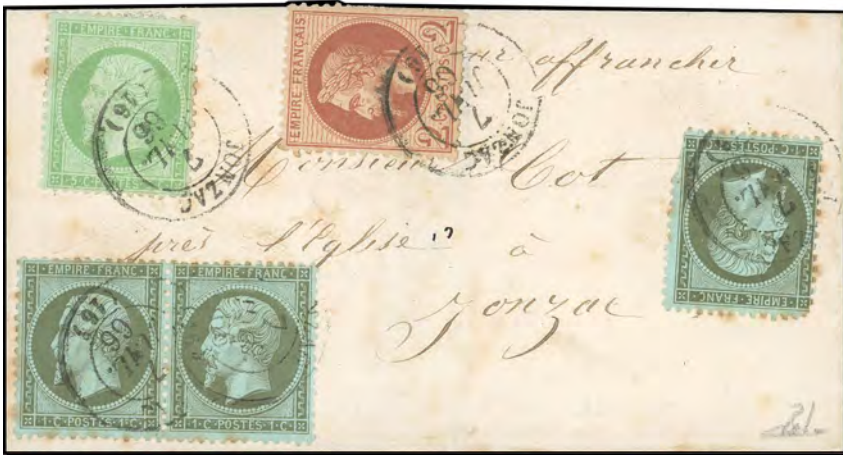 EMPIRE FRANC
5 C POSTES 5 C
EMPIRE FRANÇAIS
2 POSTES 2
JONZAC
JONZAC
(16)
66
affranchir
Monsieur Cot
près l'Eglise à
Jonzac
EMPIRE FRANC
1 C POSTES 1 C
EMPIRE FRANC
1 C POSTES 1 C
EMPIRE FRANC
1 C POSTES 1 C
66